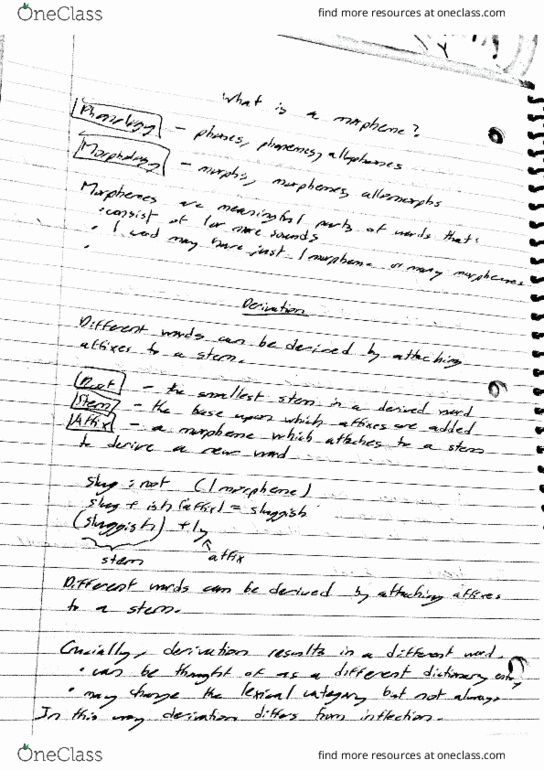 OneClass
find more resources at oneclass.com
What is a morpheme?
Phonology - phones, phonemes, allophones
Morphology - morphs, morphemes, allomorphs
Morphemes are meaningful parts of words that:
· consist of 1 or more sounds
· 1 word may have just 1 morpheme or many morphemes
·
Derivation
Different words can be derived by attaching
affixes to a stem.
Root - the smallest stem in a derived word
Stem - the base upon which affixes are added
Affix - a morpheme which attaches to a stem
to derive a new word
slug : root (1 morpheme)
slug + ish (affix) = sluggish
(sluggish) + ly
stem
affix
Different words can be derived by attaching affixes
to a stem.
Crucially, derivation results in a different word.
· can be thought of as a different dictionary entry
· may change the lexical category but not always
In this way derivation differs from inflection.
OneClass
find more resources at oneclass.com